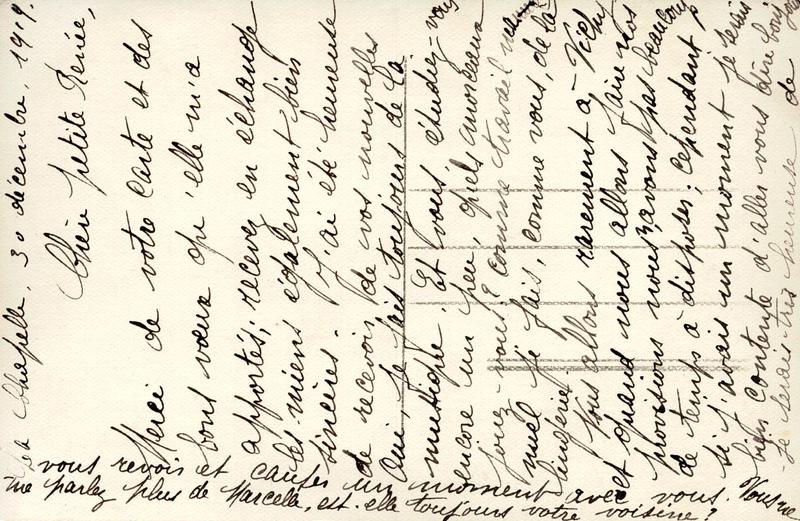 La Chapelle, 30 décembre, 1919.
Chère petite Renée,
Merci de votre carte et des
bons vœux qu'elle m'a
apportés; recevez en échange
les miens également bien
sincères. J'ai été heureuse
de recevoir de vos nouvelles
Oui, je fais toujours de la
musique. Et vous étudiez-vous
encore un peu, quels morceaux
jouez-vous? comme travail
nuel je fais, comme vous, de la
lingerie.
Nous allons rarement à Vichy
et quand nous allons faire nos
provisions nous n'avons pas beaucoup
de temps à disposer; cependant
si j'avais un moment je serais
bien contente d'aller vous dire bonjour
Je serais très heureuse de
vous revoir et causer un moment avec vous. Vous ne
me parlez plus de Marcelle, est-elle toujours votre voisine?